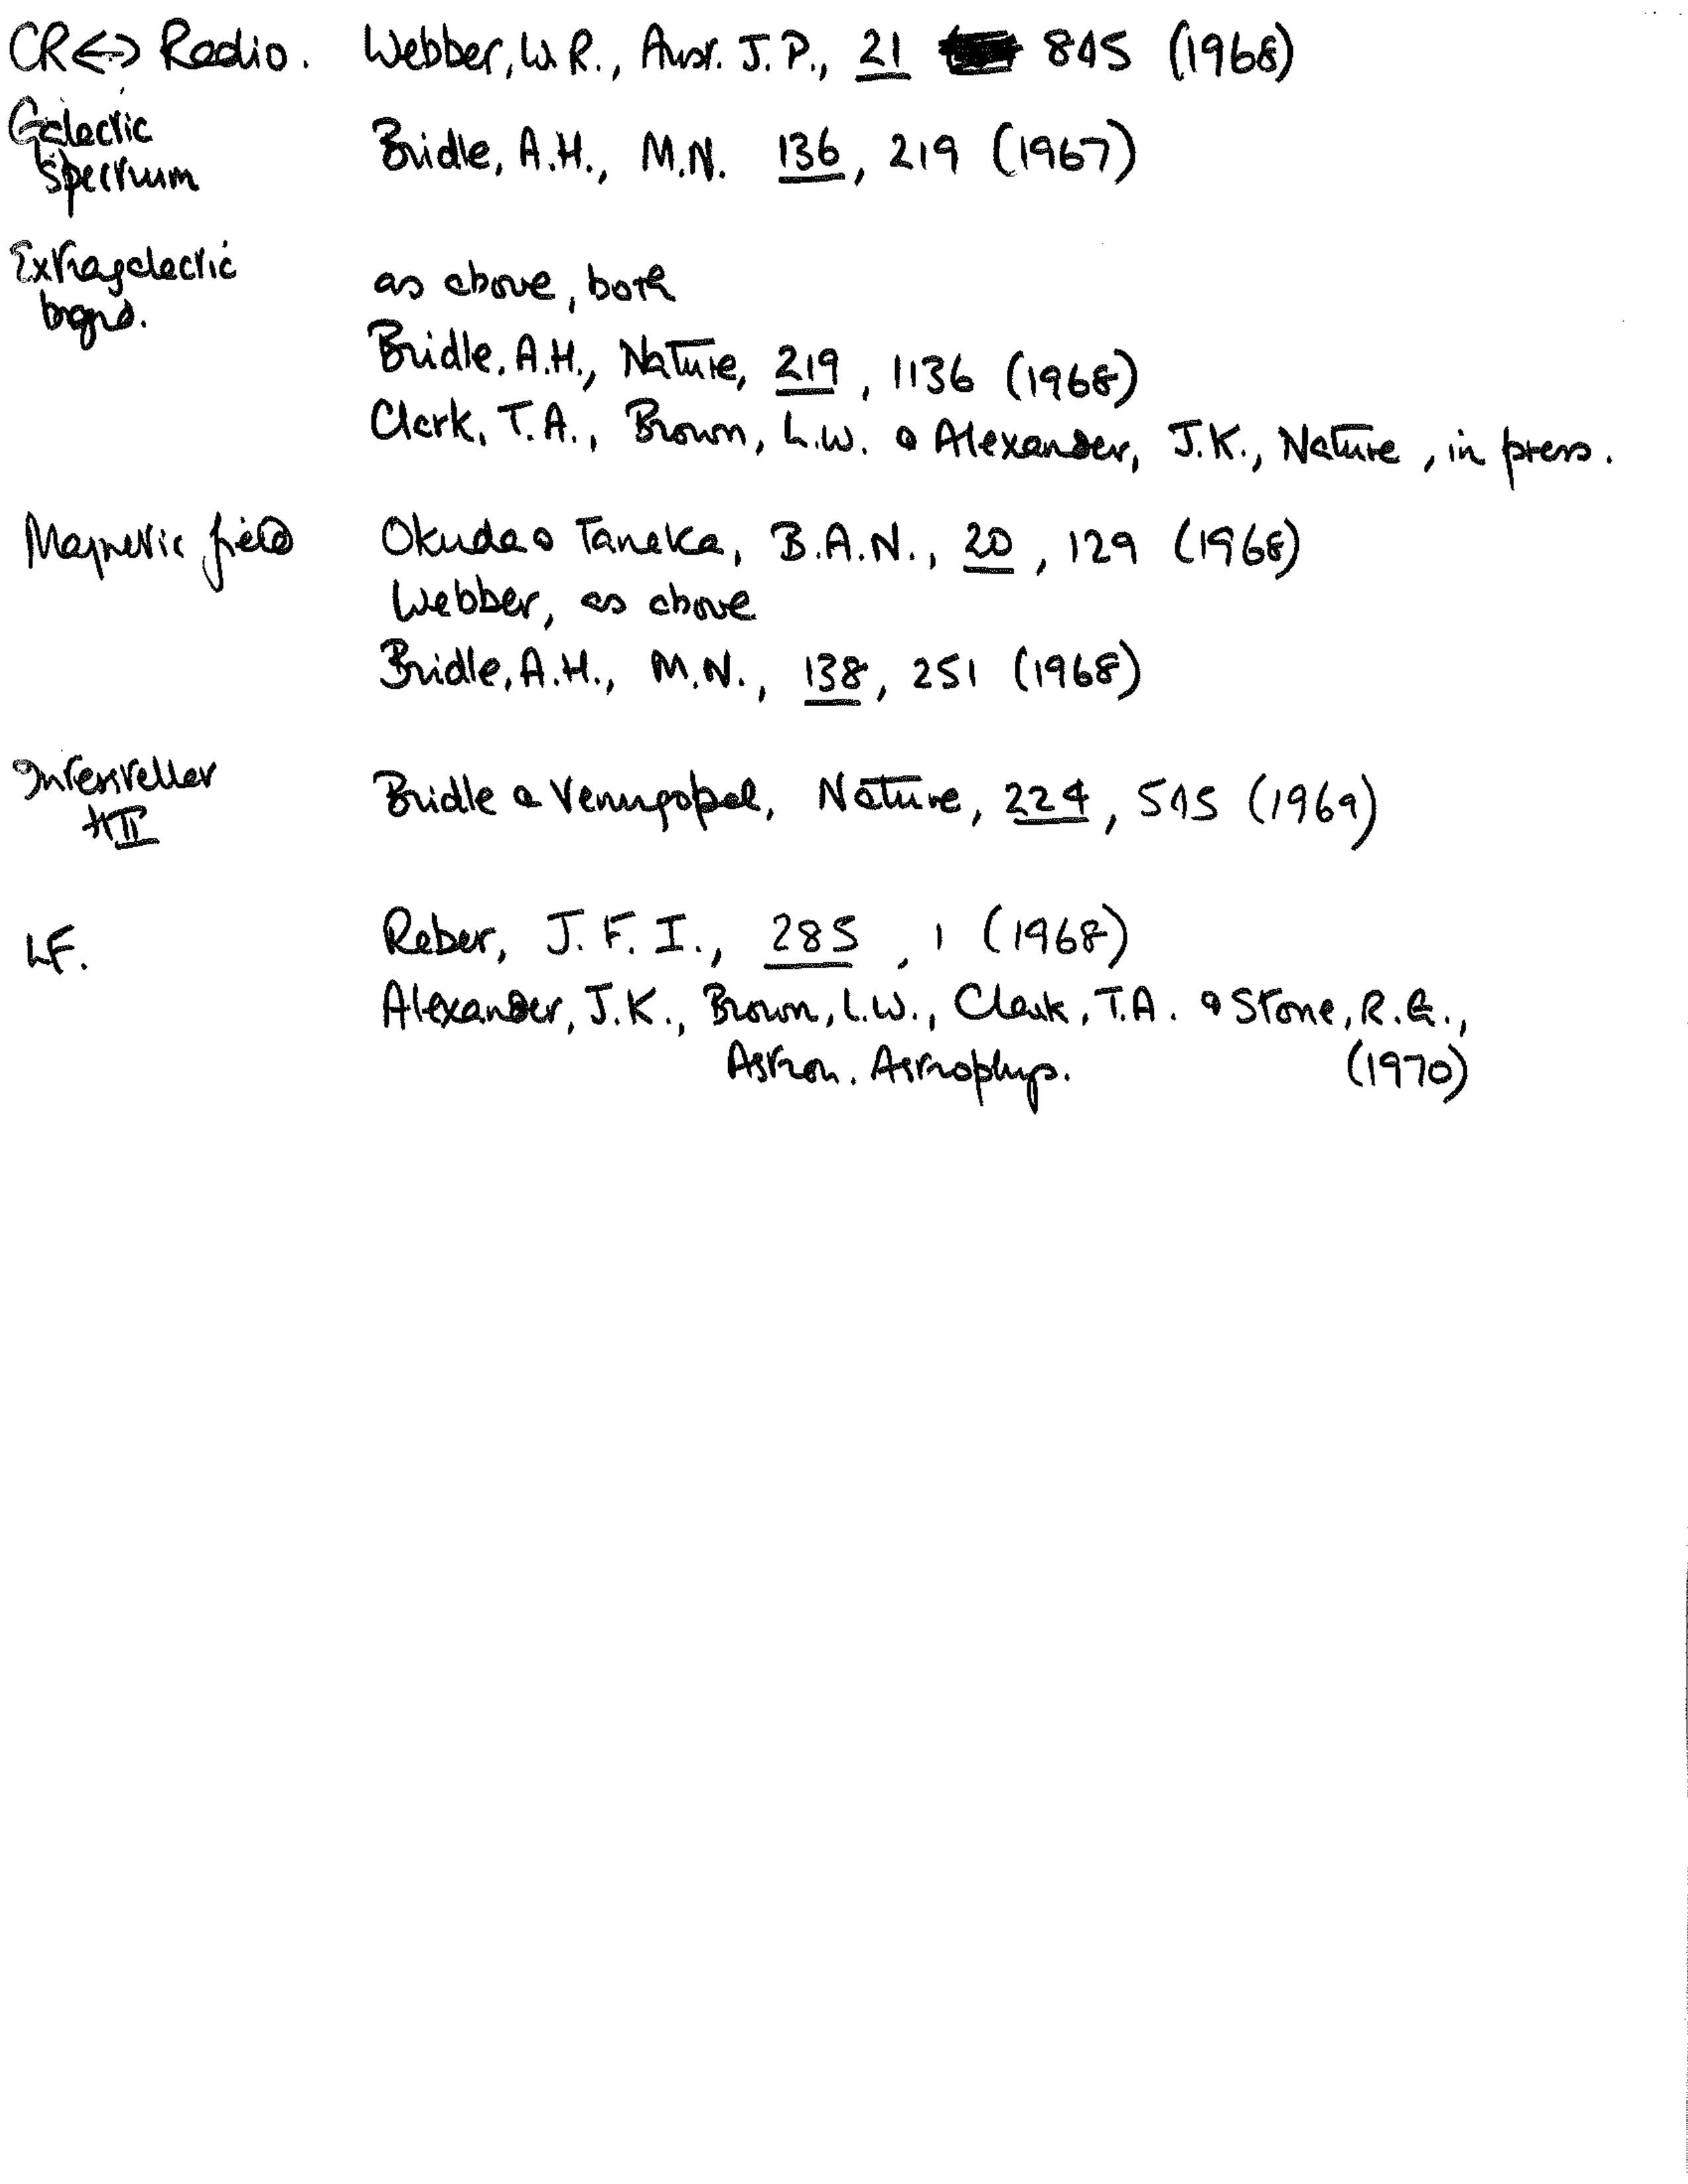 CR<->Radio. Webber, W.R., Aust. J. P., 21 845 (1968)
Galactic
spectrum Bridle, A.H., M.N. 136, 219 (1967)
Extragalactic
bgnd. as above, both
Bridle, A.H., Nature, 219, 1136 (1968)
Clark, T.A., Brown, L.W. & Alexander, J.K., Nature, in press.
Magnetic field Okuda & Tanaka, B.A.N., 20, 129 (1968)
Webber, as above
Bridle, A.H., M.N., 138, 251 (1968)
Interstellar
HII Bridle & Venugopal, Nature, 224, 545 (1969)
LF. Reber, J.F.I., 285, 1 (1968)
Alexander, J.K., Brown, L.W., Clark, T.A. & Stone, R.G.,
Astron. Astrophys. (1970)